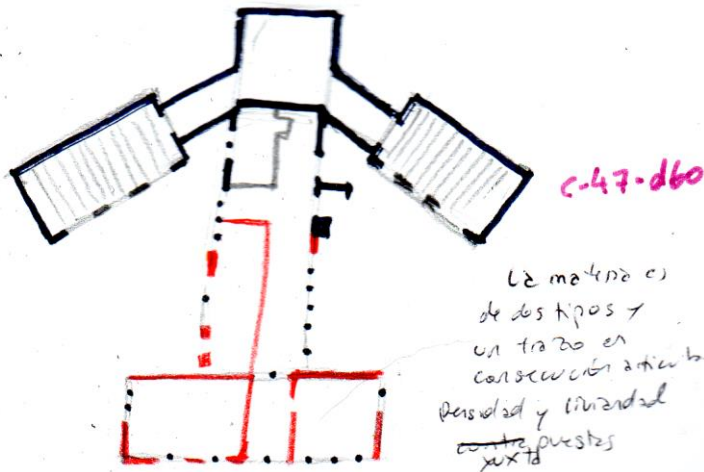 c-47-d60
La materia es
de dos tipos y
un trazo en
consecución articula
Densidad y liviandad
contra puestas
yuxta